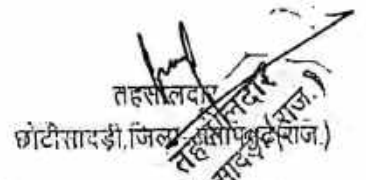 तहसीलदार
छोटीसादड़ी, जिला-प्रतापगढ़(राज.)
तहसीलदार
(राज.)